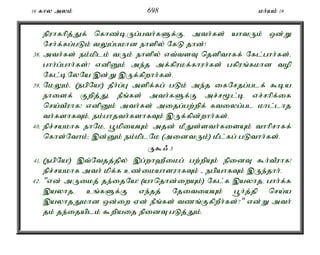 16 கால அலம் 698 மர்யம் 19
நிராகரித்துக் கொண்டிருப்பவர்களுக்கு, அவர்கள் யாவரும் ஒன்று
சேர்க்கப்படும் வலுப்பமான நாளில் கேடு தான்!
38. அவர்கள் நம்மிடம் வரும் நாளில் எவ்வளவு தெளிவாகக் கேட்பார்கள்,
பார்ப்பார்கள்! எனினும் அந்த அக்கிரமக்காரர்கள் பகிரங்கமான வழி
கேட்டிலேயே இன்று இருக்கிறார்கள்.
39. மேலும், (நபியே!) தீர்ப்பு அளிக்கப் படும் அந்த கைசேதப்படக் கூடிய
நாளைக் குறித்து, நீங்கள் அவர்களுக்கு அச்சமூட்டி எச்சரிக்கை
செய்வீராக! எனினும் அவர்கள் அதைப்பற்றிக் கவலைப்பட மாட்டாத
வர்களாகவும், நம்பாதவர்களாகவும் இருக்கின்றார்கள்.
40. நிச்சயமாக நாமே, பூமியையும் அதன் மீதுள்ளவர்களையும் வாரிசாகக்
கொள்வோம்; இன்னும் நம்மிடமே (அனைவரும்) மீட்கப் படுவார்கள்.
ருகூஃ 3
41. (நபியே!) இவ்வேதத்தில் இப்ராஹீமைப் பற்றியும் நினைவு கூர்வீராக!
நிச்சயமாக அவர் மிக்க உண்மையாளராகவும் - நபியாகவும் இருந்தார்.
42. "என் அருமைத் தந்தையே! (யாதொன்றையும்) கேட்க இயலாத, பார்க்க
இயலாத, உங்களுக்கு எந்தத் தேவையையும் பூர்த்தி செய்ய
இயலாததுமான ஒன்றை ஏன் நீங்கள் வணங்குகிறீர்கள்?" என்று அவர்
தம் தந்தையிடம் கூறியதை நினைவு படுத்தும்.